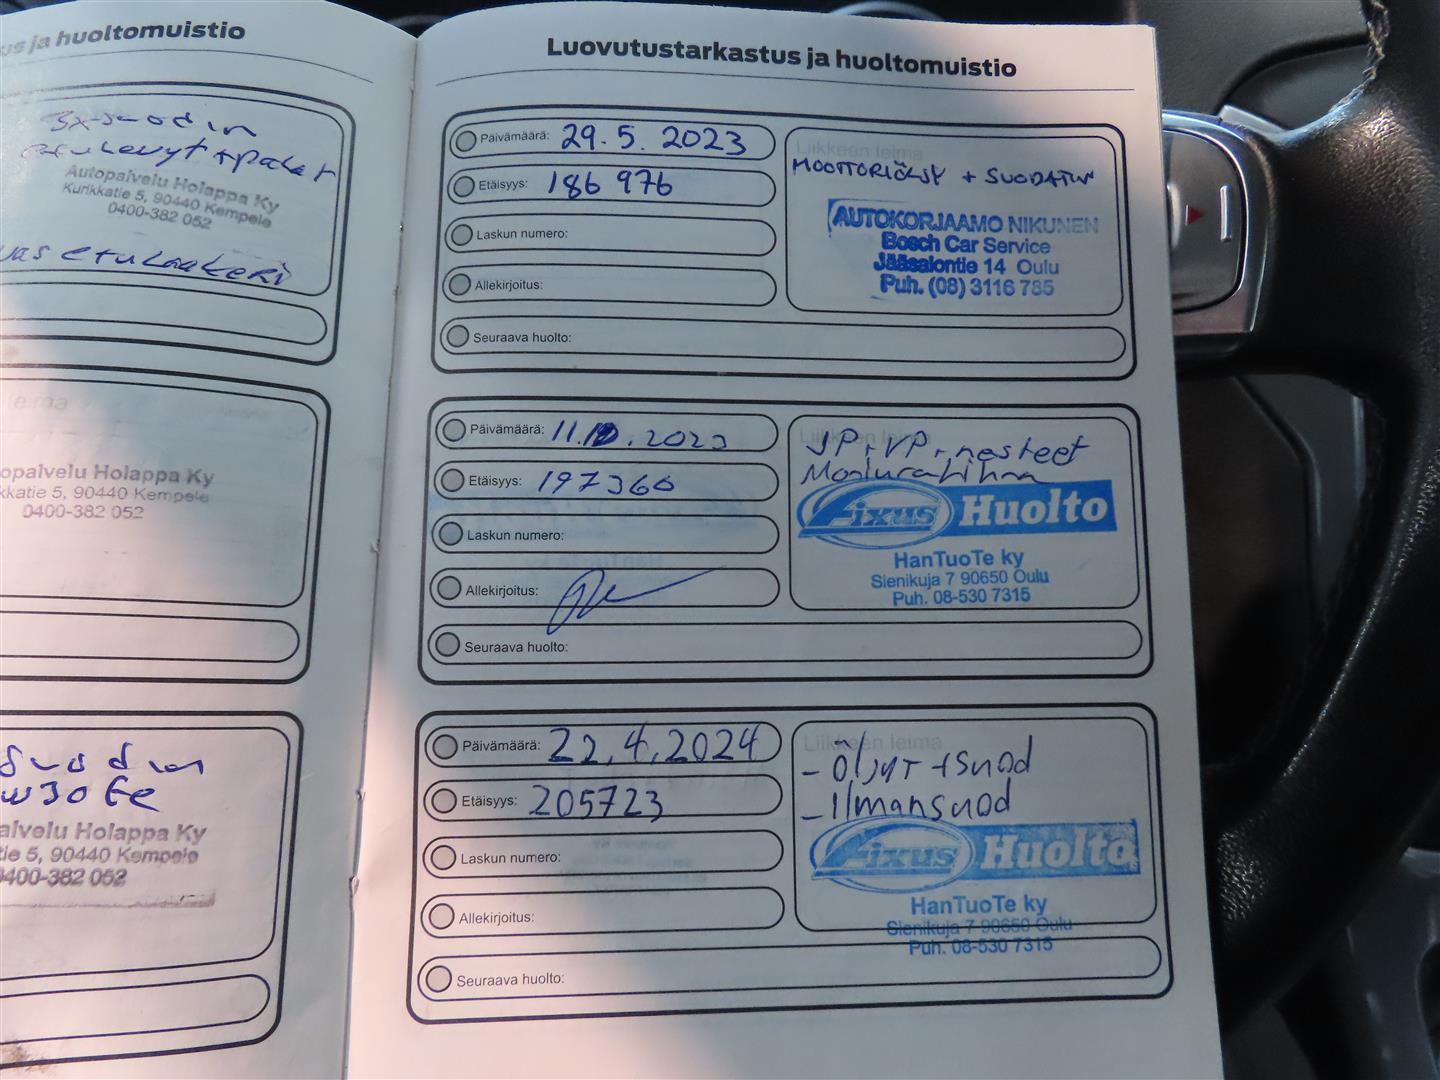 us ja huoltomuistio
3x-suodin
Autopalvelu Holappa Ky
Kurikkatie 5, 90440 Kempele
0400-382 052
etulaakeri
leima
opalvelu Holappa Ky
kkatie 5, 90440 Kempele
0400-382 052
Suodin
5w30 6e
alvelu Holappa Ky
tie 5, 90440 Kempele
0400-382 052
Luovutustarkastus ja huoltomuistio
Päivämäärä: 29.5.2023
Etäisyys: 186 976
Laskun numero:
Allekirjoitus:
Seuraava huolto:
Liikkeen leima
MOOTTORIÖLJY + SUODATIN
AUTOKORJAAMO NIKUNEN
Bosch Car Service
Jääsalontie 14 Oulu
Puh. (08) 3116 785
Päivämäärä: 11.10.2023
Etäisyys: 197360
Laskun numero:
Allekirjoitus:
Seuraava huolto:
Liikkeen leima
JP, VP, nesteet
Moniurahihna
Fixus Huolto
HanTuoTe ky
Sienikuja 7 90650 Oulu
Puh. 08-530 7315
Päivämäärä: 22.4.2024
Etäisyys: 205723
Laskun numero:
Allekirjoitus:
Seuraava huolto:
Liikkeen leima
- Öljyt + suod
- Ilmansuod
Fixus Huolto
HanTuoTe ky
Sienikuja 7 90650 Oulu
Puh. 08-530 7315